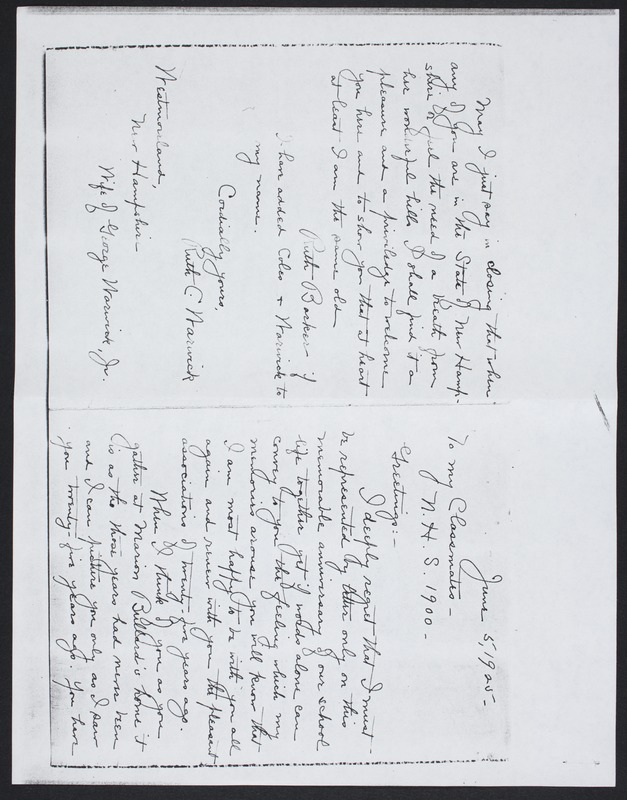 June 5, 1925-
To my Classmates-
of N. H. S. 1900-
Greetings:-
I deeply regret that I must
be represented by letter only on this
memorable anniversary of our school
life together yet if words alone can
convey to you the feeling which my
memories arouse you will know that
I am most happy to be with you all
again and renew with you the pleasant
associations of twenty-five years ago.
When I think of you as you
gather at Marion Bullard's home it
is as tho those years had never been
and I can picture you only as I saw
you twenty-five years ago. You have
May I just say in closing that when
any of you are in the State of New Hamp-
shire or feel the need of a breath from
her wonderful hills I shall find it a
pleasure and a priviledge to welcome
you here and to show you that at heart
at least I am the same old
Ruth Barker if
I have added Coles + Warwick to
my name.
Cordially yours,
Ruth C Warwick
Westmoreland,
New Hampshire-
Wife of George Warwick, Jr.